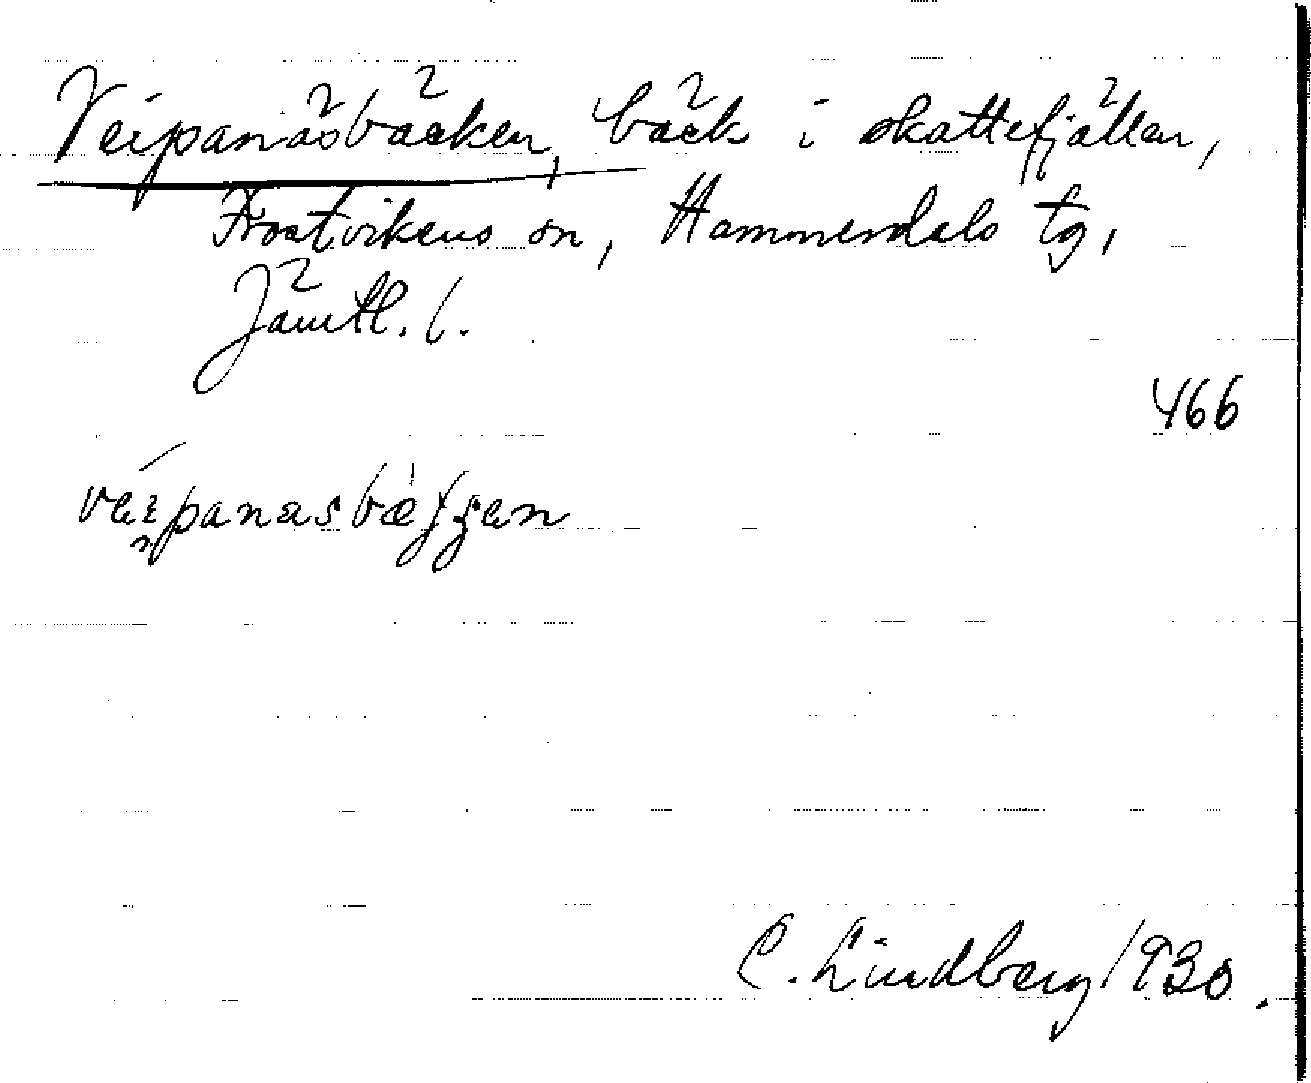 Veipanäsbäcken, bäck i skattefjällen,
Frostvikens sn, Hammerdals tg,
Jämtl. l.
466
C. Lindberg 1930.